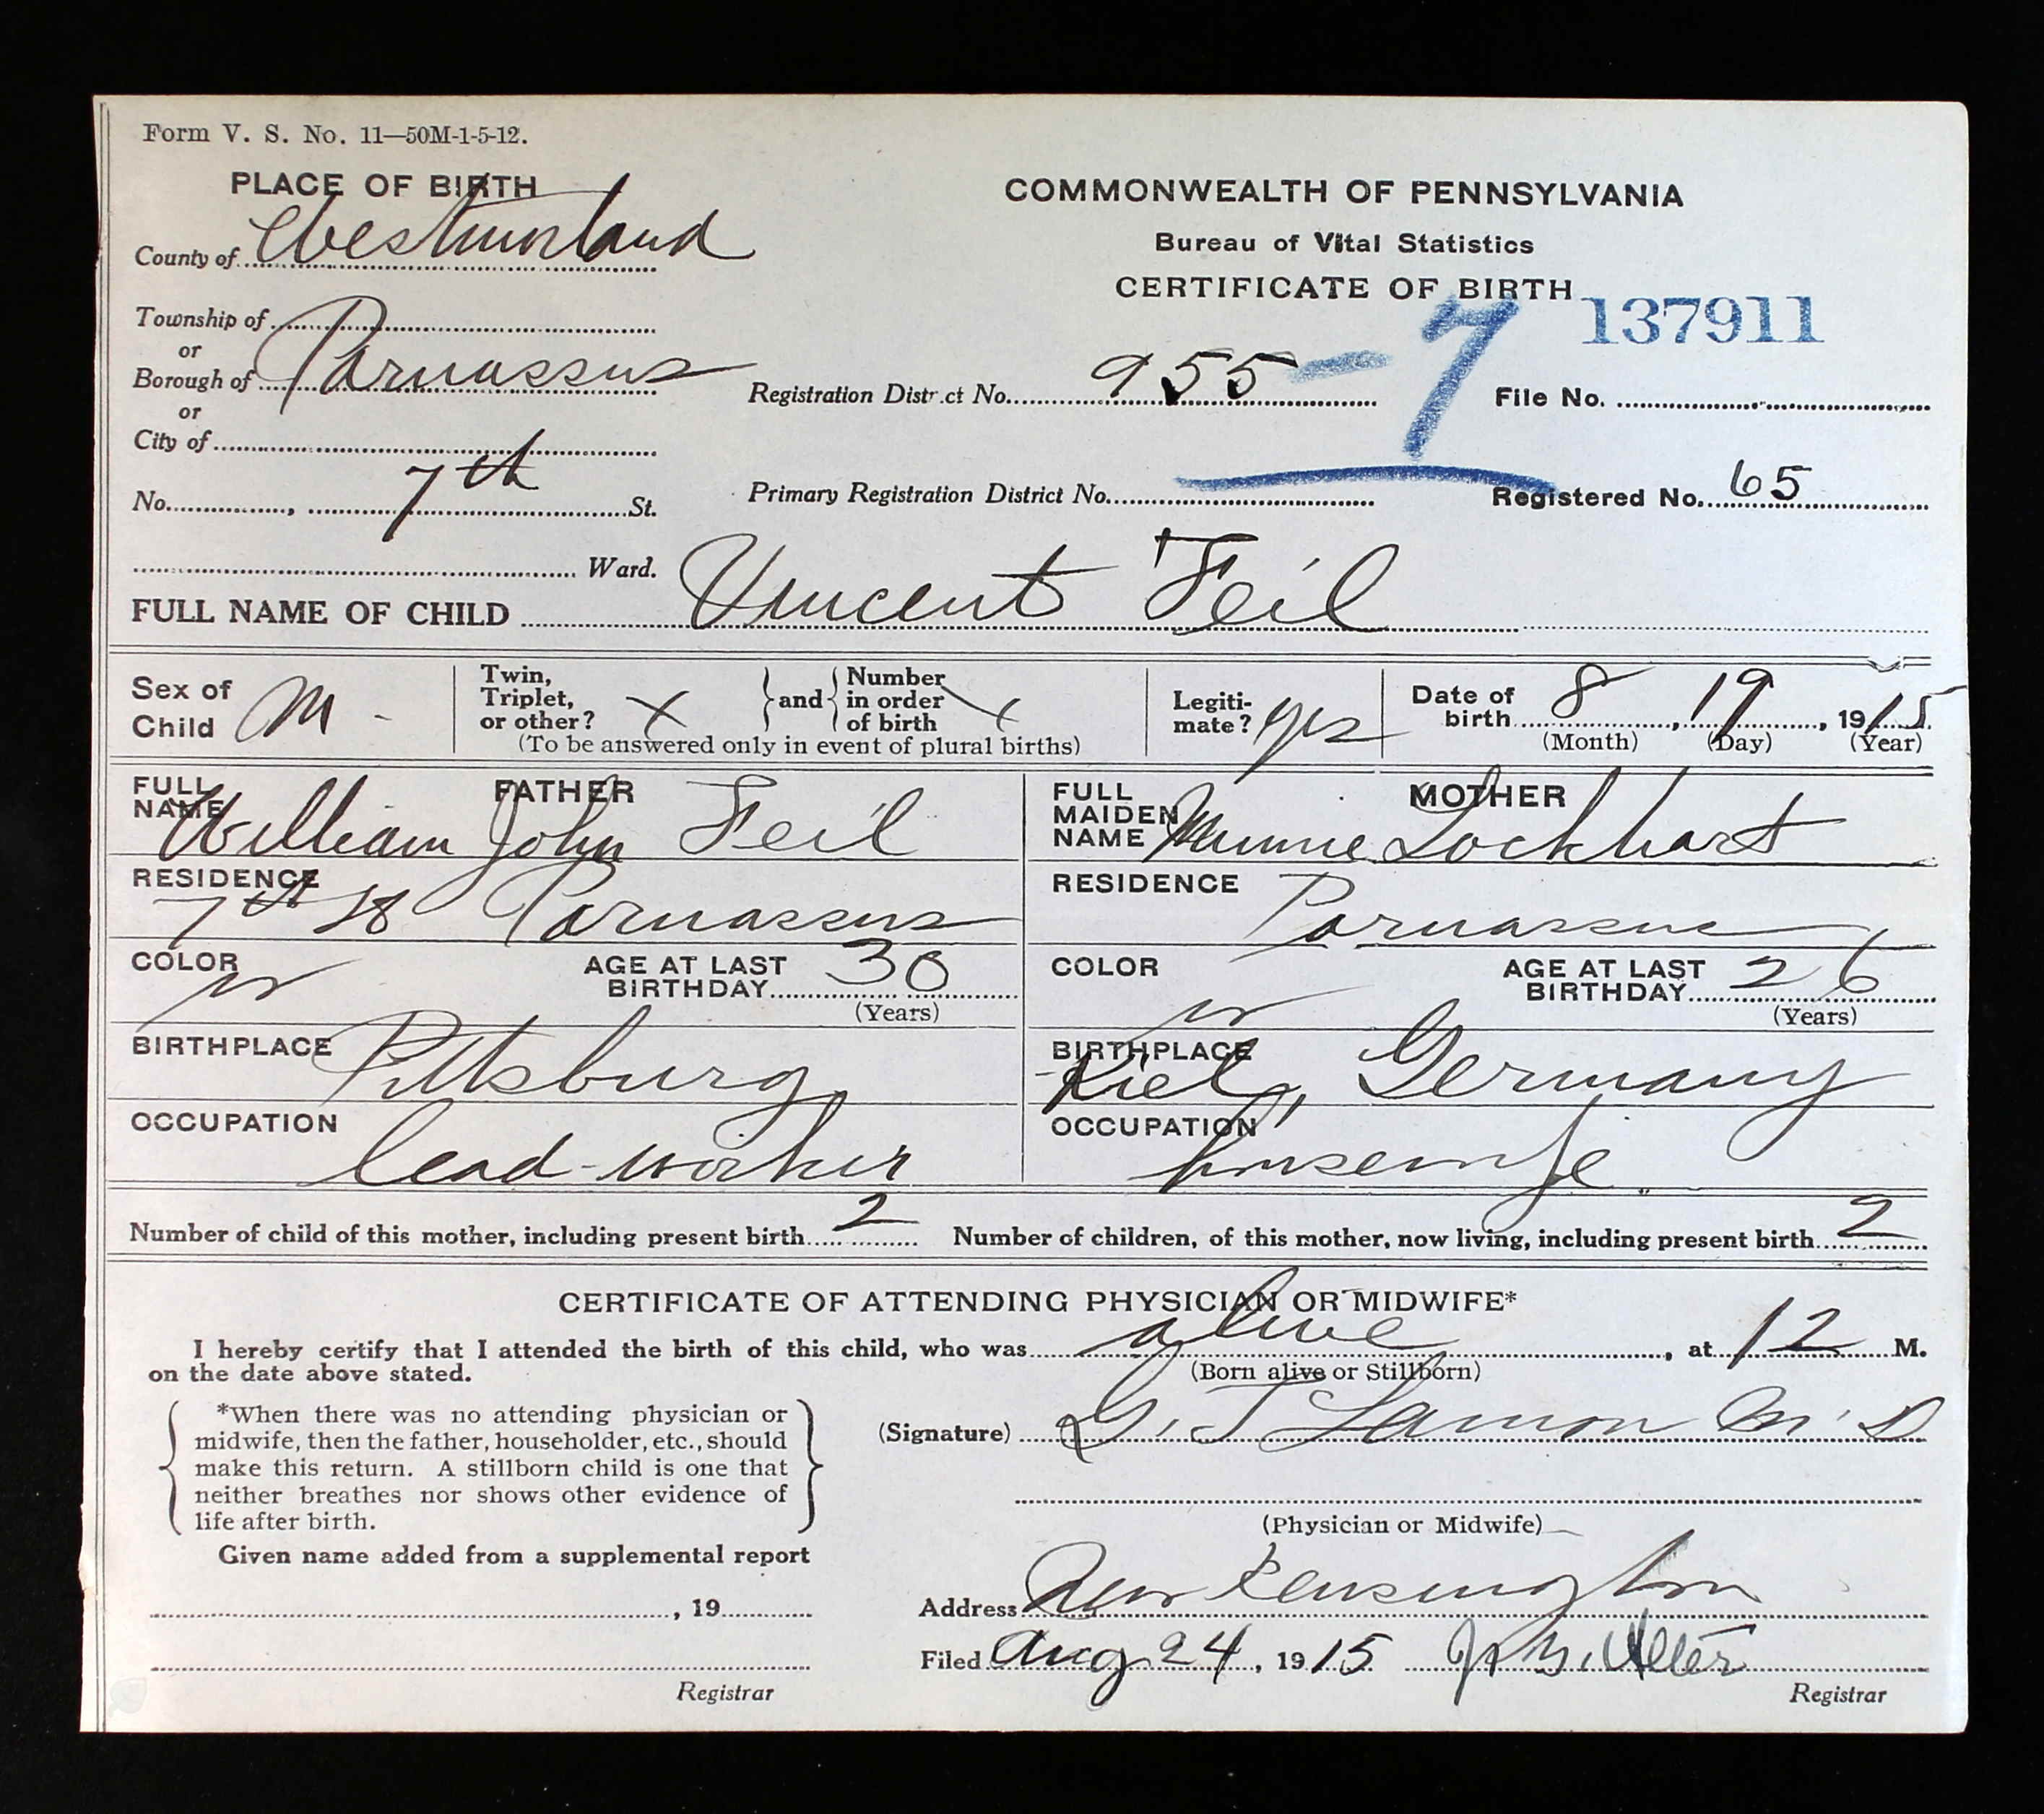 Form V. S. No. 11—50M-1-5-12.
PLACE OF BIRTH
County of Westmorland
Township of
or
Borough of Parnassus
or
City of
No. , 7th St.
Ward.
COMMONWEALTH OF PENNSYLVANIA
Bureau of Vital Statistics
CERTIFICATE OF BIRTH
137911
Registration District No. 955 - 7 File No.
Primary Registration District No. Registered No. 65
FULL NAME OF CHILD Vincent Feil
Sex of Child M - Twin, Triplet, or other? x and Number in order of birth x (To be answered only in event of plural births) Legitimate? yes Date of birth 8, 19, 1915 (Month) (Day) (Year)
FATHER
FULL NAME William John Feil
RESIDENCE 7th St Parnassus
COLOR W AGE AT LAST BIRTHDAY 30 (Years)
BIRTHPLACE Pittsburg
OCCUPATION lead-worker
MOTHER
FULL MAIDEN NAME Minnie Lockhart
RESIDENCE Parnassus
COLOR W AGE AT LAST BIRTHDAY 26 (Years)
BIRTHPLACE Kiel, Germany
OCCUPATION housewife
Number of child of this mother, including present birth 2 Number of children, of this mother, now living, including present birth 2
CERTIFICATE OF ATTENDING PHYSICIAN OR MIDWIFE*
I hereby certify that I attended the birth of this child, who was alive, at 12 M.
on the date above stated. (Born alive or Stillborn)
*When there was no attending physician or
midwife, then the father, householder, etc., should
make this return. A stillborn child is one that
neither breathes nor shows other evidence of
life after birth.
Given name added from a supplemental report
, 19
Registrar
(Signature) G. T Lamon M.D
(Physician or Midwife)
Address New Kensington
Filed Aug 24, 1915 Alter
Registrar